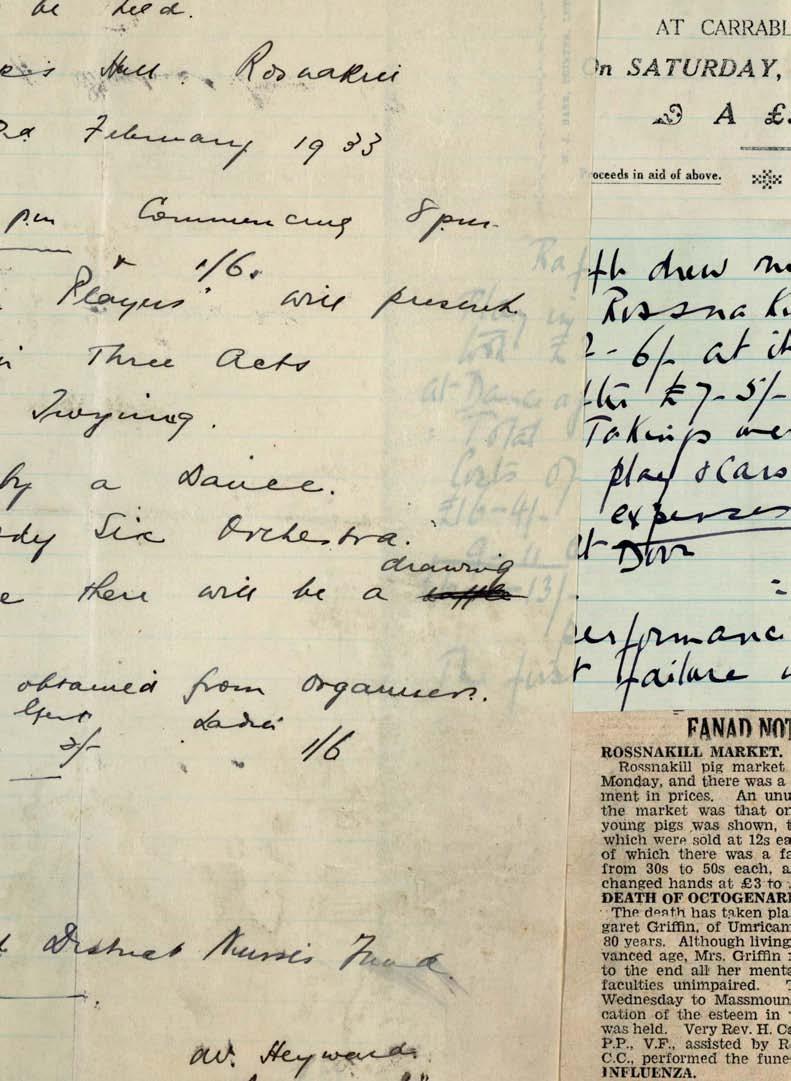 be held.
Hall. Rosnakill
February 1933
pm Commencing 8 pm.
1/6.
Players" will present
Three Acts
by a Dance.
Six Orchestra.
drawing
there will be a
obtained from organisers.
Gent Ladies
2/- 1/6
District Nurses Fund.
W. Heyward
Total
Costs of
£16-4/-
The first
AT CARRABL
On SATURDAY,
A £
oceeds in aid of above.
drew
Rossna
6/- at
£7-5/-
Takings
play
expenses
Door
erformanc
failure
FANAD NOT
ROSSNAKILL MARKET.
Rossnakill pig market
Monday, and there was a
ment in prices. An unu
the market was that or
young pigs was shown, t
which were sold at 12s ea
of which there was a fa
from 30s to 50s each, a
changed hands at £3 to
DEATH OF OCTOGENARI
The death has taken pla
garet Griffin, of Umricam
80 years. Although living
vanced age, Mrs. Griffin r
to the end all her menta
faculties unimpaired. T
Wednesday to Massmoun
cation of the esteem in
was held. Very Rev. H. Ca
P.P., V.F., assisted by R
C.C., performed the fune
INFLUENZA.